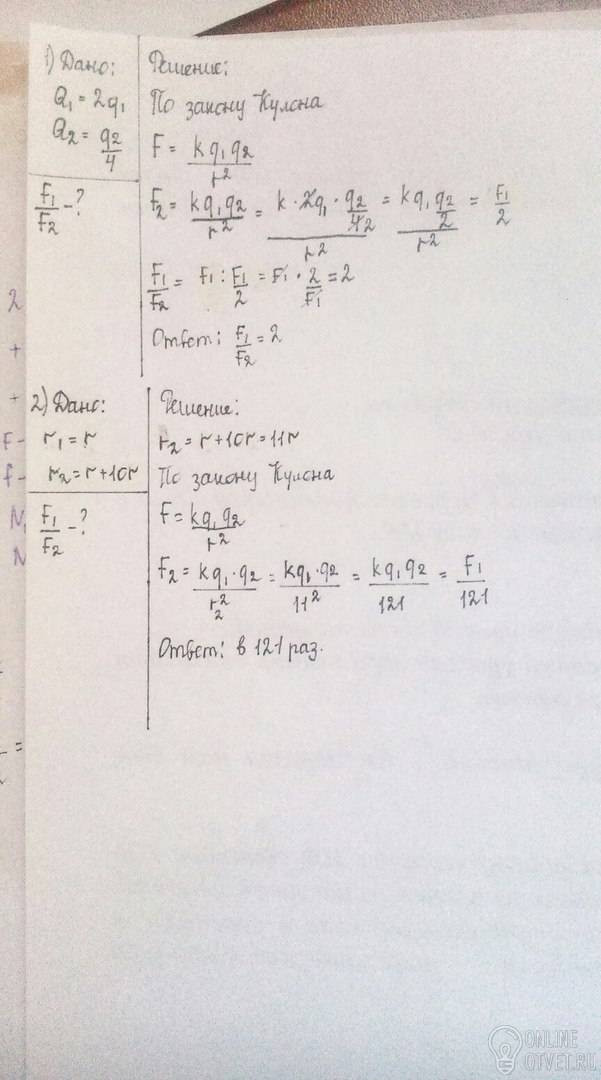 1) Дано:
Q₁ = 2q₁
Q₂ = q₂/4
F₁/F₂ - ?
Решение:
По закону Кулона
F = kq₁q₂/r²
F₂ = kq₁q₂/r² = k · 2q₁ · q₂/4 2/r² = kq₁q₂/2/r² = F₁/2
F₁/F₂ = F₁ : F₁/2 = F₁ · 2/F₁ = 2
Ответ: F₁/F₂ = 2
2) Дано:
r₁ = r
r₂ = r + 10r
F₁/F₂ - ?
Решение:
r₂ = r + 10r = 11r
По закону Кулона
F = kq₁q₂/r²
F₂ = kq₁ · q₂/r₂² = kq₁ · q₂/11² = kq₁q₂/121 = F₁/121
Ответ: в 121 раз.
2
+
+
F -
f -
N
N
=
ONLINE
OTVET.RU